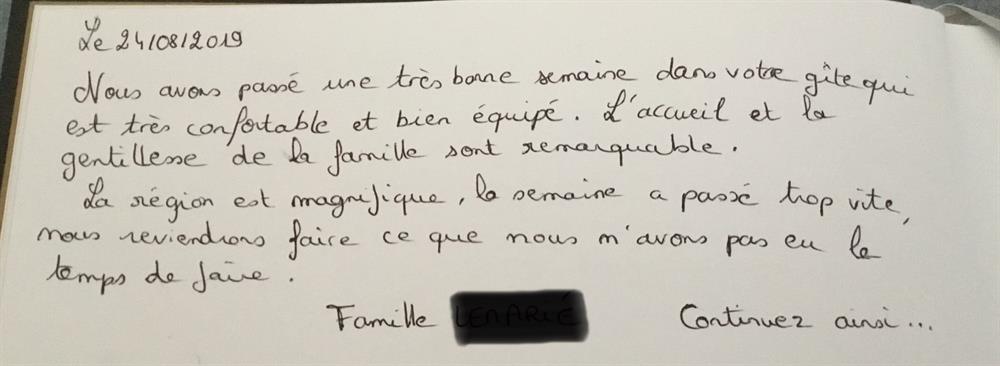 Le 24/08/2019
Nous avons passé une très bonne semaine dans votre gîte qui
est très confortable et bien équipé. L'accueil et la
gentillesse de la famille sont remarquable.
La région est magnifique, la semaine a passé trop vite,
nous reviendrons faire ce que nous n'avons pas eu le
temps de faire.
Famille
Continuez ainsi...